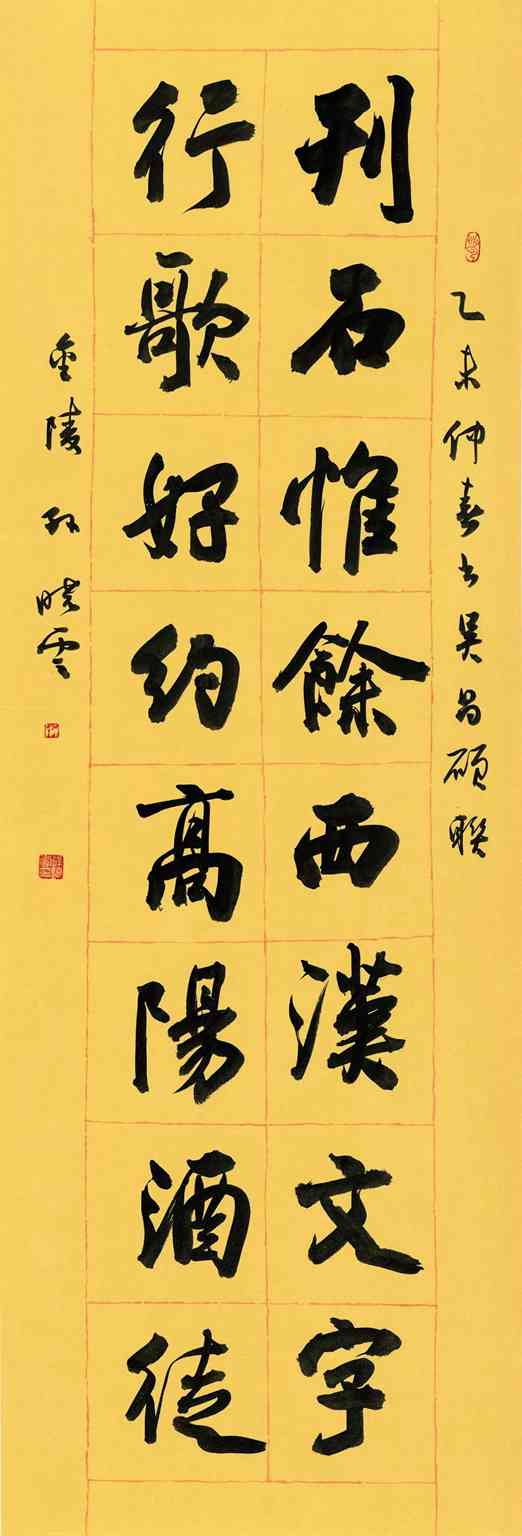 乙未仲春書吴昌碩聯
刊石惟餘西漢文字
行歌好約高陽酒徒
金陵 孫曉雲